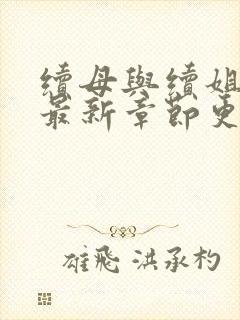 續母與續姐
最新章節更
雄飛 洪承杓